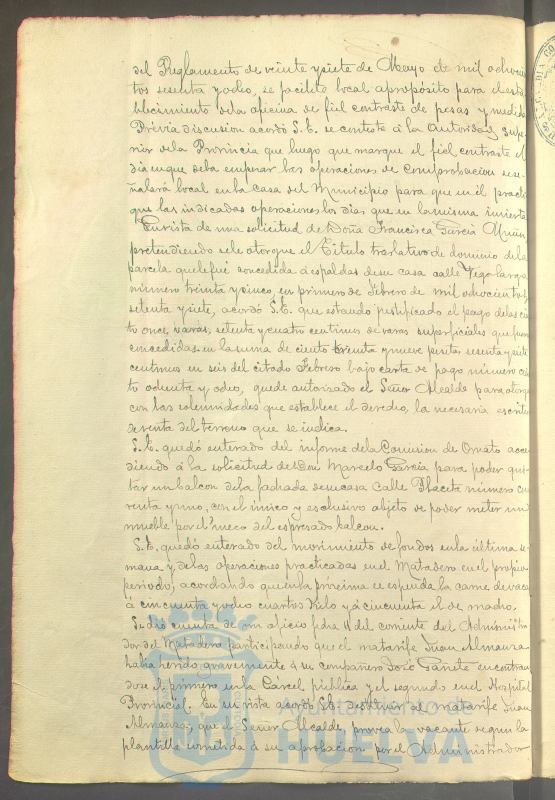 del Reglamento de veinte y siete de Mayo de mil ochocien
tos sesenta y ocho, se facilite local apropósito para el esta
blecimiento de la oficina de fiel contraste de pesas y medidas
Prévia discusion acordó S.E. se conteste á la Autoridad supe
rior de la Provincia que luego que marque el fiel contraste el
dia en que deba empezar las operaciones de comprobacion se se
ñalará local en la Casa del Municipio para que en él practi
que las indicadas operaciones los dias que en la misma invierta
En vista de una solicitud de Doña Francisca García
pretendiendo se le otorgue el Título traslativo de dominio de la
parcela que le fué concedida á espaldas de su casa calle Vega larga
número treinta y cinco, en primero de Febrero de mil ochocientos
setenta y siete, acordó S.E. que estando justificado el pago de las cien
to once varas, setenta y cuatro centimos de varas superficiales que fueron
concedidas en la suma de ciento treinta y nueve pesetas sesenta y siete
centimos en seis del citado Febrero bajo carta de pago número cien
to ochenta y ocho, quede autorizado el Señor Alcalde para otorgar
con las solemnidades que establece el derecho, la necesaria escritura
de venta del terreno que se indica.
S.E. quedó enterado del informe de la Comision de Ornato acce
diendo á la solicitud de Don Marcelo García para poder qui
tar un balcon de la fachada de su casa calle Placeta número cua
renta y uno, con el único y esclusivo objeto de poder meter un
mueble por el hueco del espresado balcon.
S.E. quedó enterado del movimiento de fondos en la última se
mana y de las operaciones practicadas en el Matadero en el propio
periodo, acordando que en la próxima se espenda la carne de vaca
á cincuenta y ocho cuartos kilo y á cincuenta el de macho.
Se dió cuenta de un oficio fecha 11 del corriente del Administra
dor del Matadero participando que el matarife Juan Almansa
habia herido gravemente á su compañero José encontran
dose el primero en la Cárcel pública y el segundo en el Hospital
Provincial. En su vista acordó S.E. destituir de matarife Juan
Almansa, que el Señor Alcalde provea la vacante segun la
plantilla sometida á su aprobacion por el Administrador
Ayuntamiento de
HUELVA